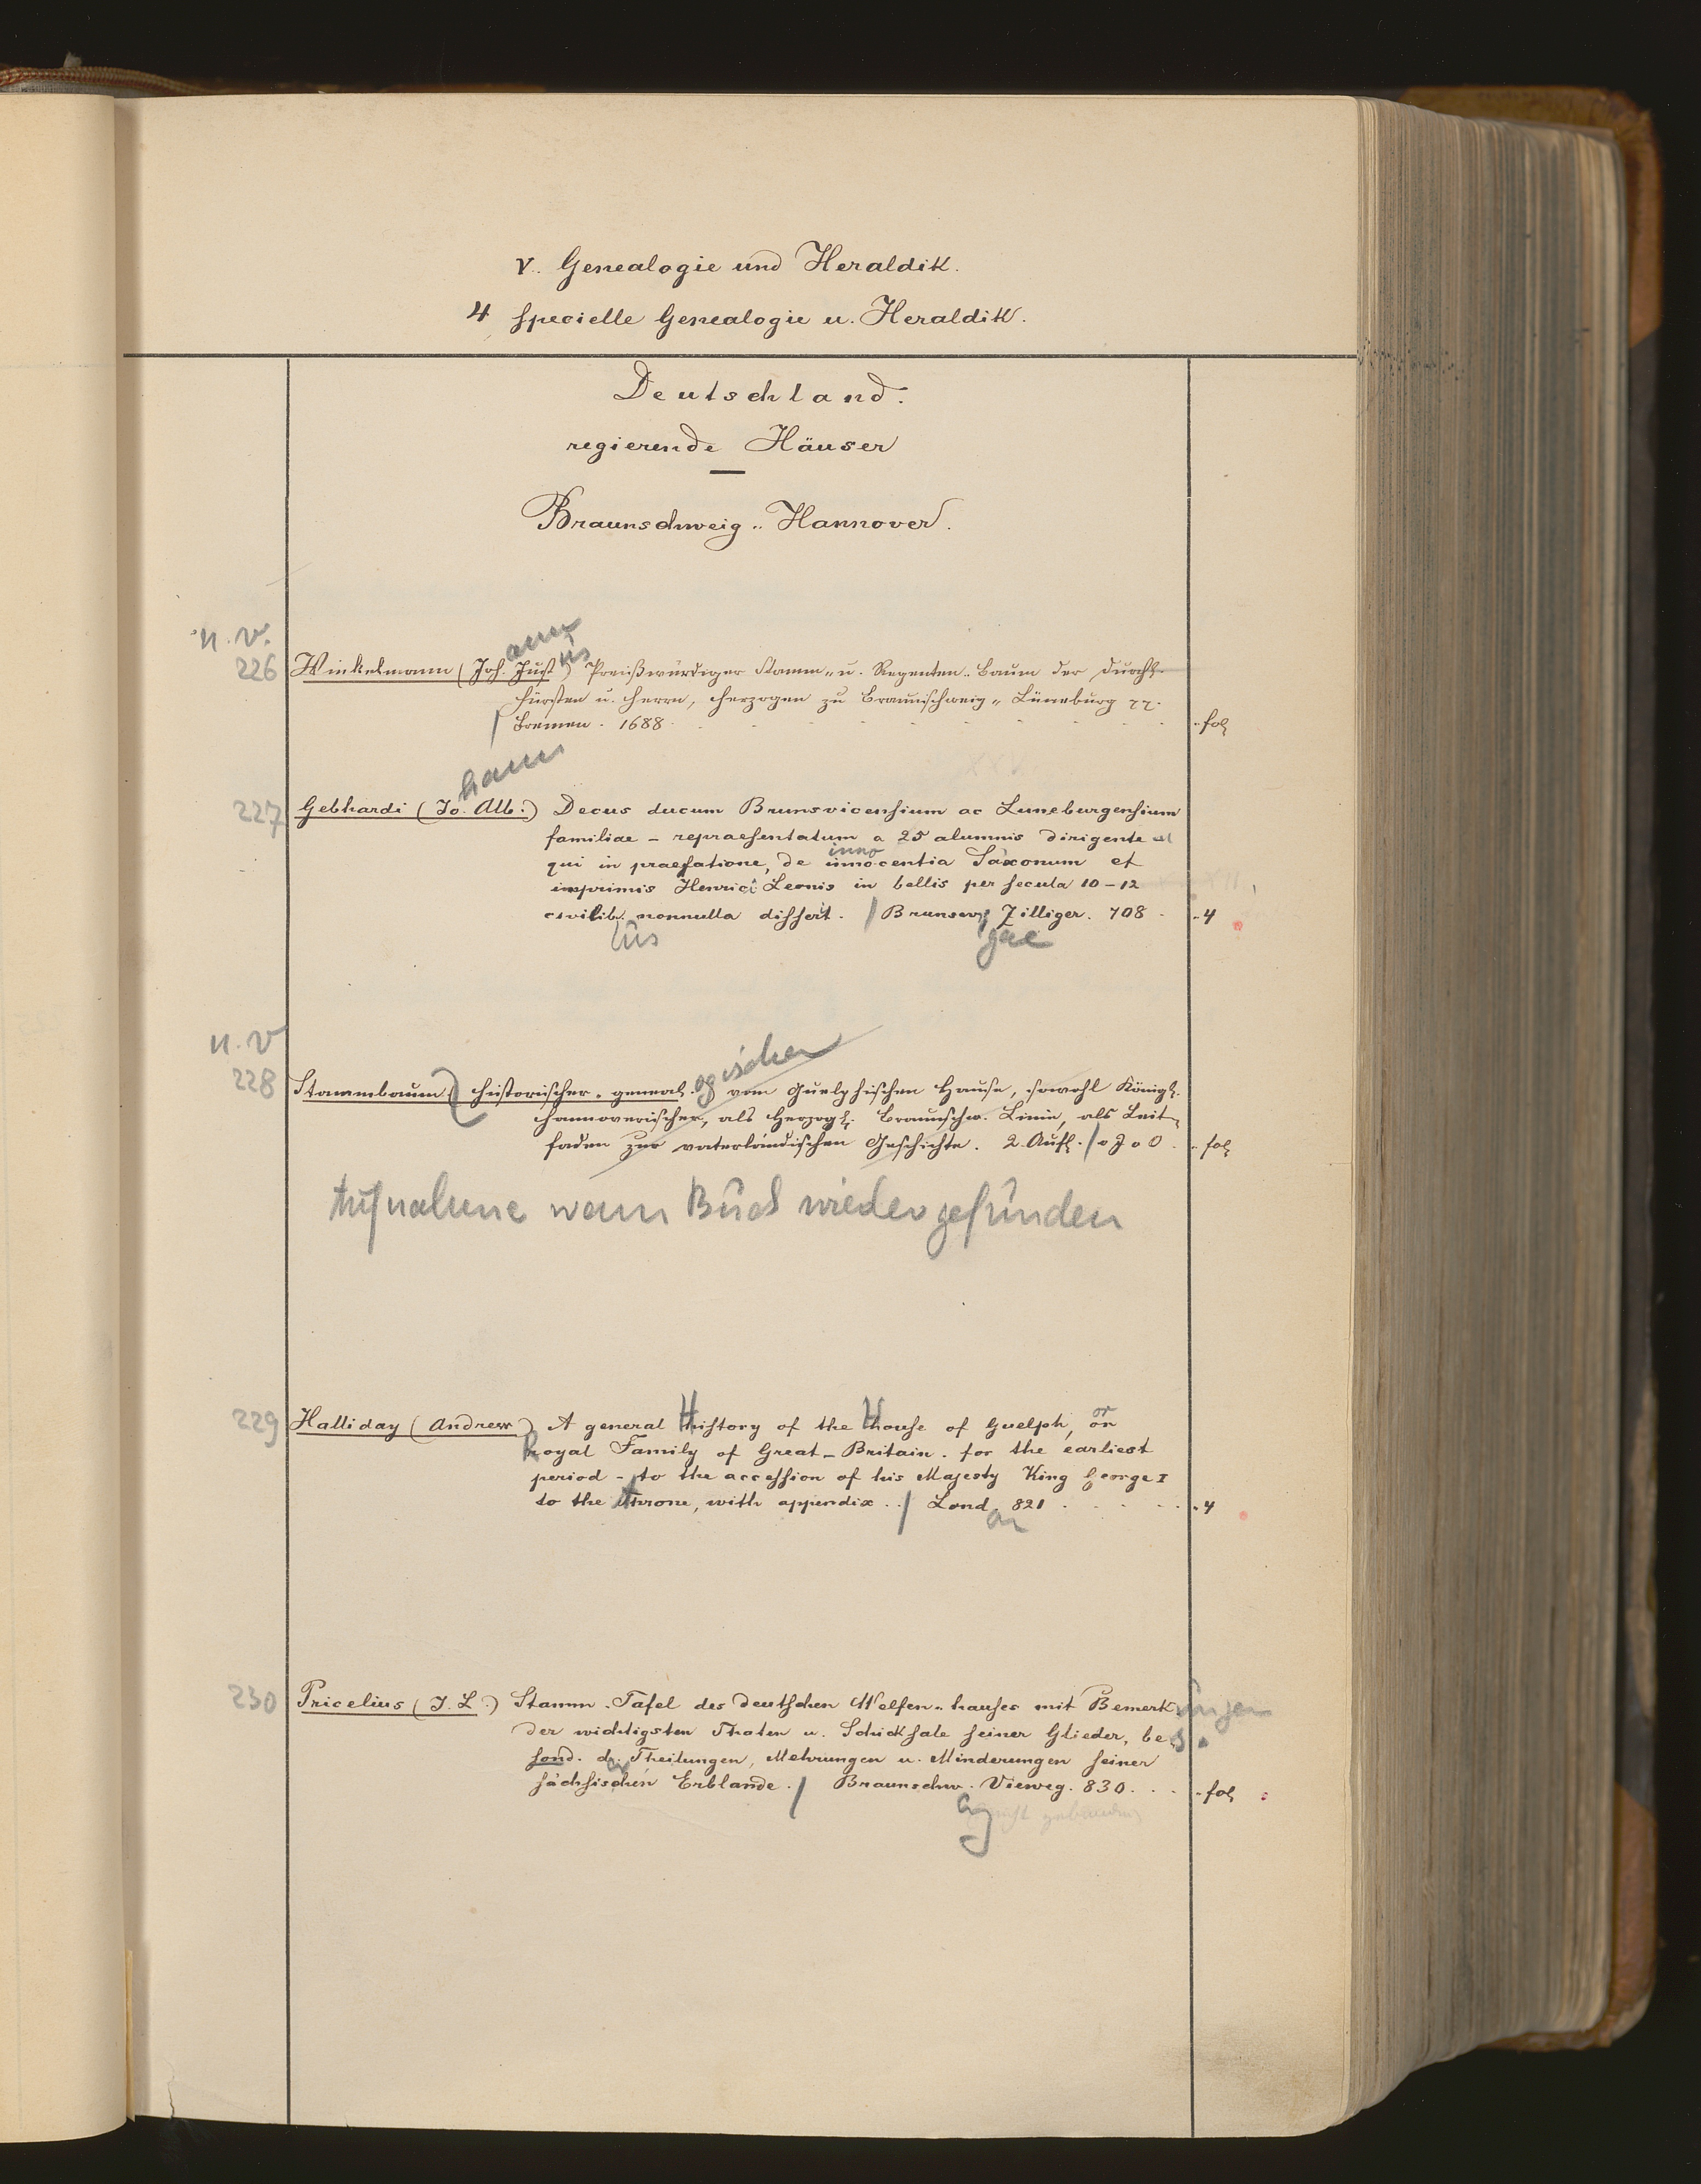 V. Genealogie und Heraldik.
4 specielle Genealogie u. Heraldik.
Deutschland.
regierende Häuser
Braunschweig-Hannover.
n. v.
ann us
226 Winkelmann (Joh. Just) Preißwürdiger Stamm- u. Regenten-Baum der Durchl.
Fürsten u. Herrn, Herzogen zu Braunschweig-Lüneburg
/ Bremen. 1688. fol
hann
227 Gebhardi (Jo. Alb.) Decus ducum Brunsvicensium ac Luneburgensium
familiae - repraesentatum a 25 alumnis dirigente
inno
qui in praefatione, de innocentia Saxonum et
imprimis Henrici Leonis in bellis per secula 10-12
civilib. nonnulla dissert. / Brunsvig Zilliger. 708. 4
bus gae
n. v
ogischer
228 Stammbaum, historischer-geneal. vom Guelphischen Hause, sowohl Königl.
hannoverischer, als Herzogl. Braunschw. Linie, als Leit-
faden zur vaterländischen Geschichte. 2. Aufl. / o J o O. fol
Aufnahme wenn Buch wiedergefunden
229 Halliday (Andrew) A general History of the House of Guelph, or
Royal Family of Great-Britain. for the earliest
period - to the accession of his Majesty King George I
to the throne, with appendix. / Lond. 821. 4
on
230 Pricelius (J. L.) Stamm-Tafel des deutschen Welfen-hauses mit Bemerkungen
der wichtigsten Thaten u. Schicksale seiner Glieder, bes.
sond. d. Theilungen, Mehrungen u. Minderungen seiner
er
sächsischen Erblande. / Braunschw. Vieweg. 830. fol
nicht gebunden